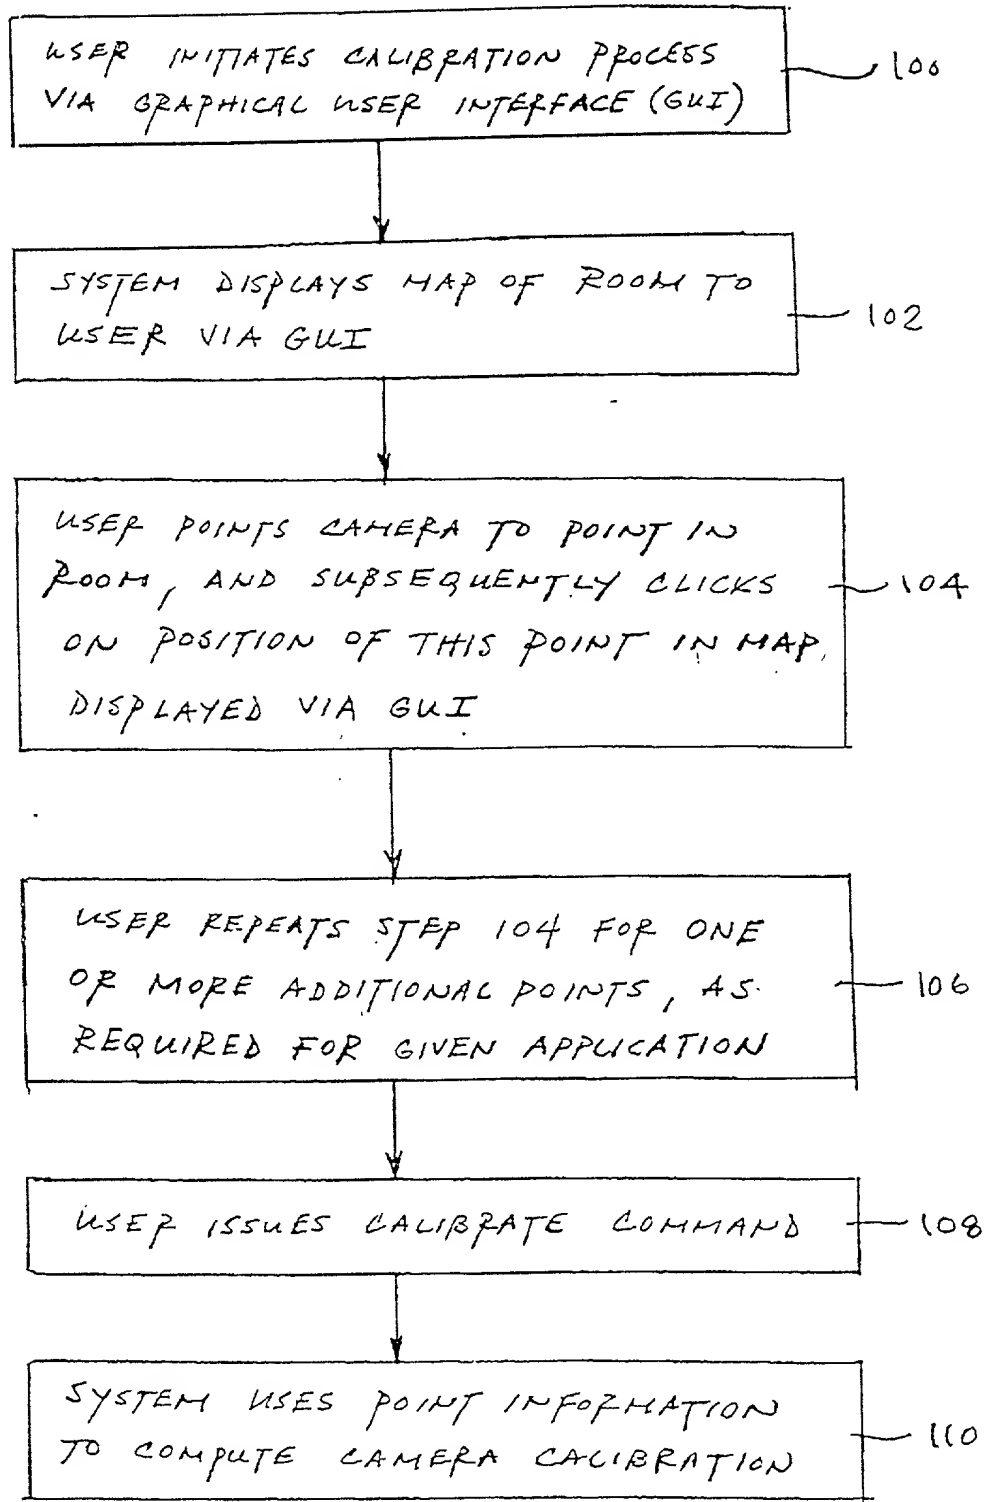 USER INITIATES CALIBRATION PROCESS
VIA GRAPHICAL USER INTERFACE (GUI)
100
SYSTEM DISPLAYS MAP OF ROOM TO
USER VIA GUI
102
USER POINTS CAMERA TO POINT IN
ROOM, AND SUBSEQUENTLY CLICKS
ON POSITION OF THIS POINT IN MAP
DISPLAYED VIA GUI
104
USER REPEATS STEP 104 FOR ONE
OR MORE ADDITIONAL POINTS, AS
REQUIRED FOR GIVEN APPLICATION
106
USER ISSUES CALIBRATE COMMAND
108
SYSTEM USES POINT INFORMATION
TO COMPUTE CAMERA CALIBRATION
110